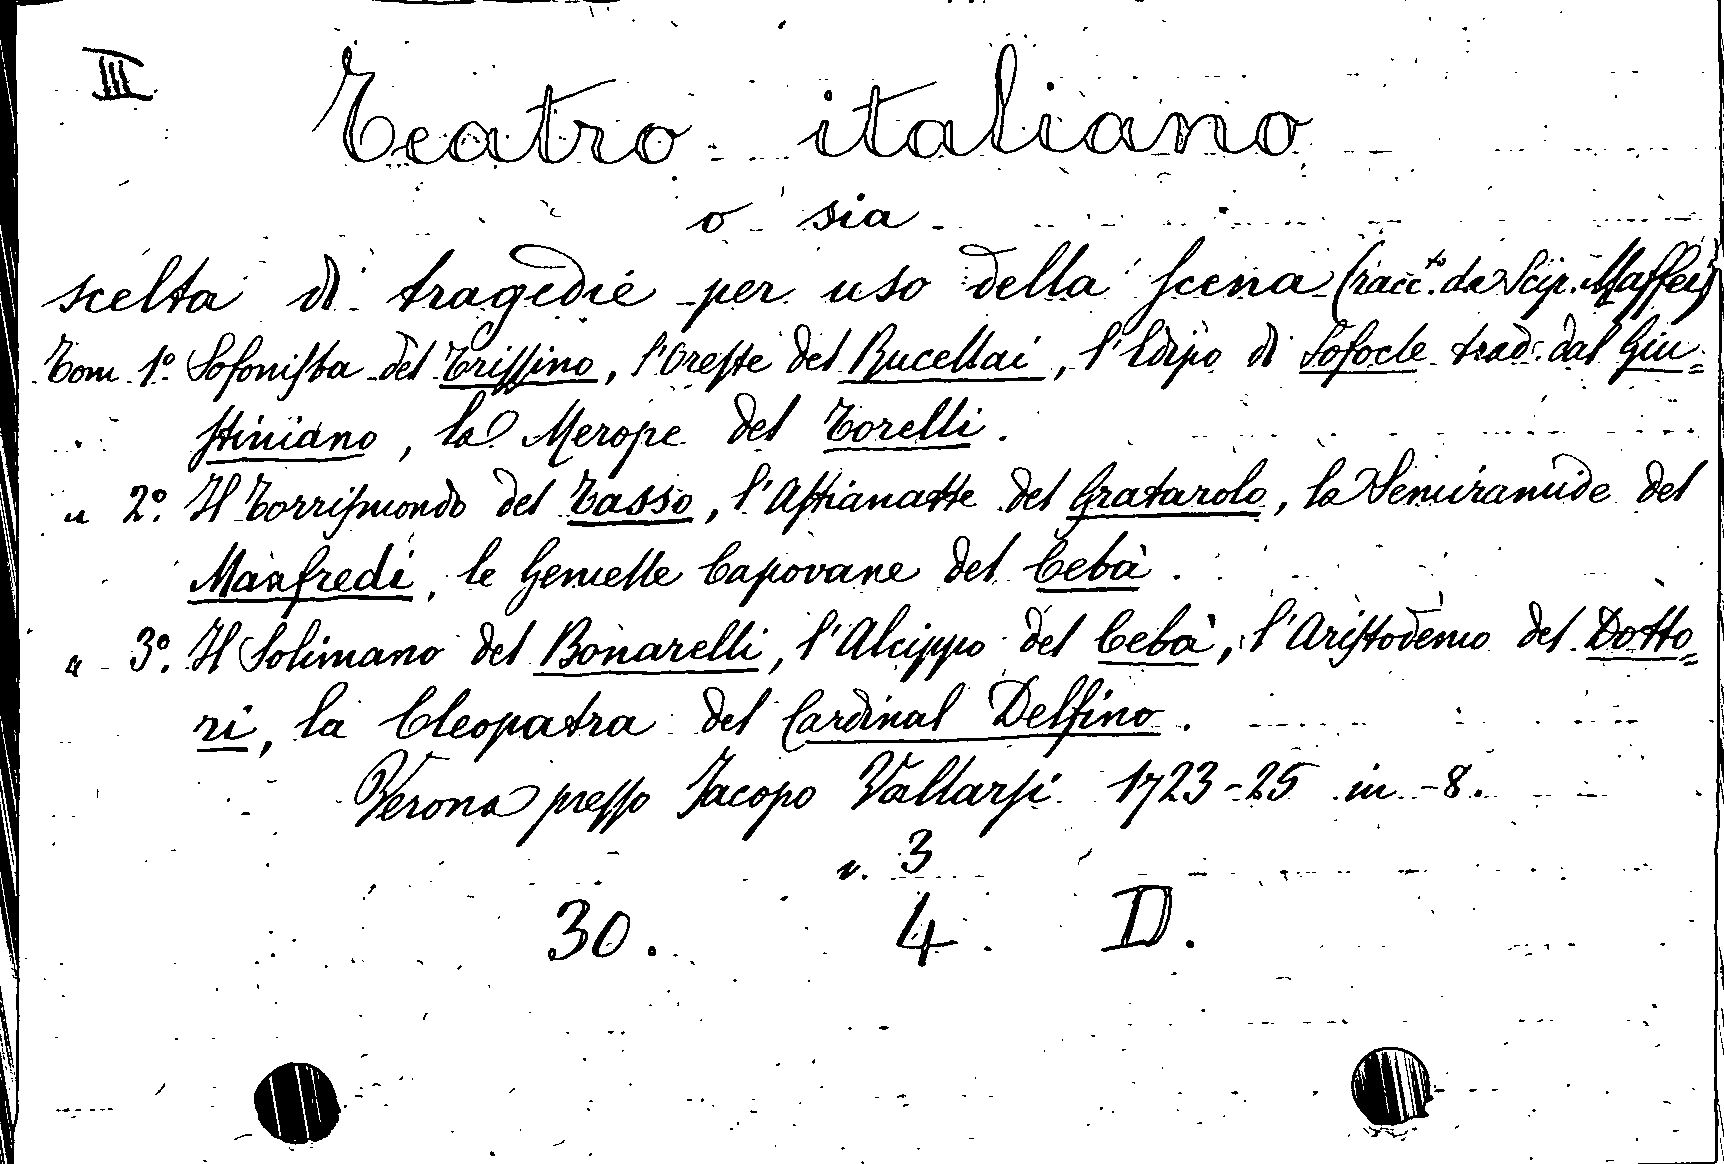 III
Teatro italiano
o sia
scelta di tragedie per uso della scena (racc.to da Scip. Maffei)
Tom 1º. Sofonisba del Trissino, l'Oreste del Rucellai, l'Edipo di Sofocle trad. dal Giu=
stiniano, la Merope del Torelli.
" 2º. Il Torrismondo del Tasso, l'Astianatte del Gratarolo, la Semiramide del
Manfredi, le Gemelle Capovane del Cebà.
" 3º. Il Solimano del Bonarelli, l'Alcippo del Cebà, l'Aristodemo del Dotto=
ri, la Cleopatra del Cardinal Delfino.
Verona presso Jacopo Vallarsi 1723-25 in-8.
v. 3
30. 4. D.